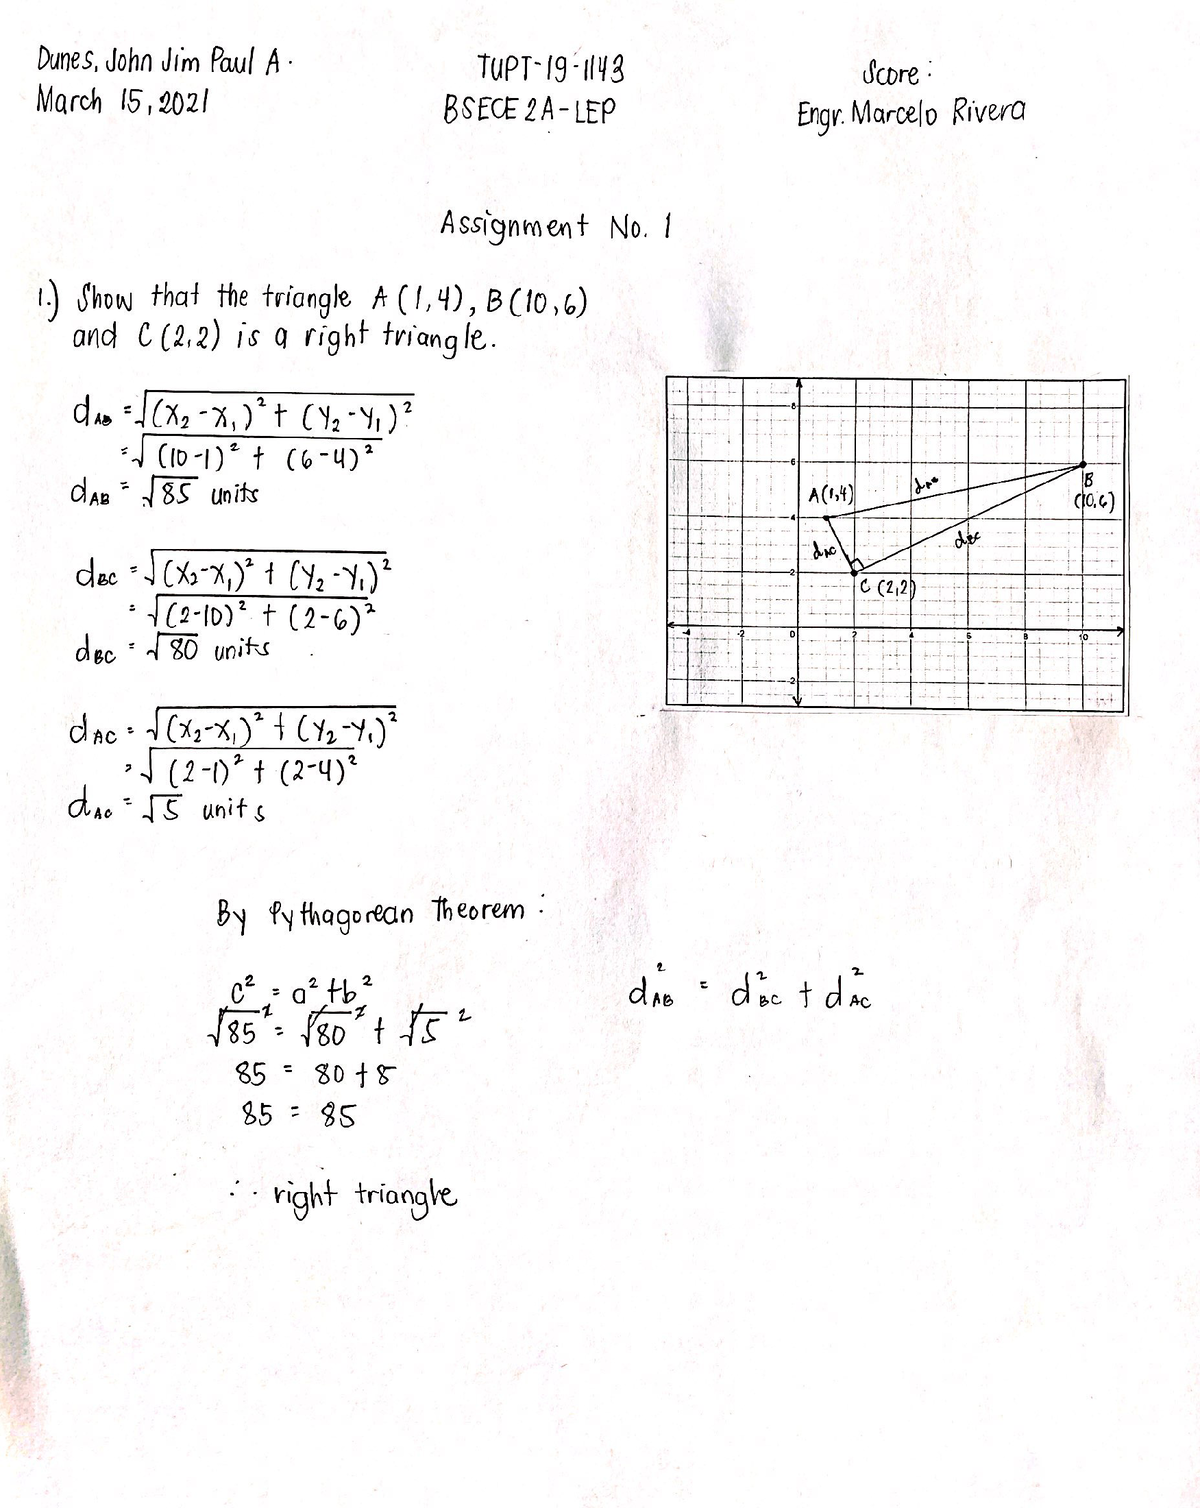 Dunes, John Jim Paul A.
March 15, 2021
TUPT-19-1143
BSECE 2A-LEP
Score:
Engr. Marcelo Rivera
Assignment No. 1
1.) Show that the triangle A (1,4), B (10,6)
and C (2,2) is a right triangle.
d AB = √(X₂-X₁)² + (Y₂-Y₁)²
= √(10-1)² + (6-4)²
d AB = √85 units
d BC = √(X₂-X₁)² + (Y₂-Y₁)²
= √(2-10)² + (2-6)²
d BC = √80 units
d AC = √(X₂-X₁)² + (Y₂-Y₁)²
= √(2-1)² + (2-4)²
d AC = √5 units
8
6
A(1,4)
d AB
B
(10,6)
4
d AC
d BC
2
C (2,2)
-4 -2 0 2 4 6 8 10
-2
By Pythagorean Theorem:
c² = a² + b²
√85² = √80² + √5²
85 = 80 + 8
85 = 85
d²AB = d²BC + d²AC
∴ right triangle